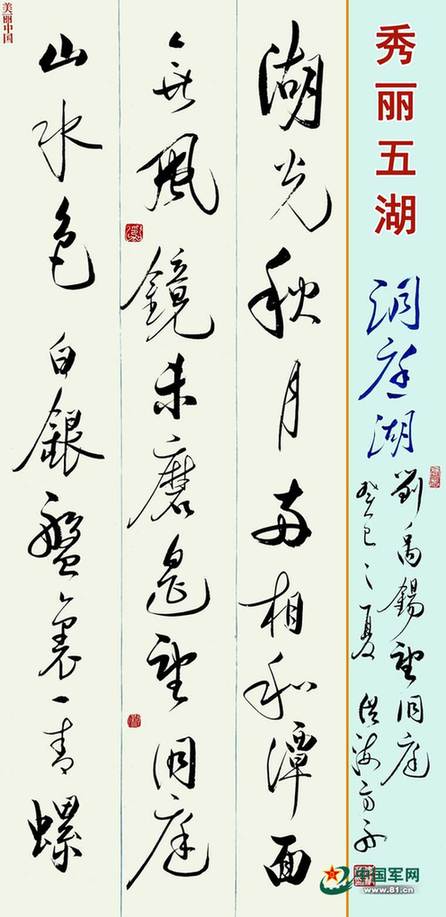 秀丽五湖
洞庭湖
劉禹錫望洞庭
癸巳之夏
湖光秋月两相和潭面
無風鏡未磨遥望洞庭
山水色白銀盤裏一青螺
美丽中国
中国军网
www.81.cn